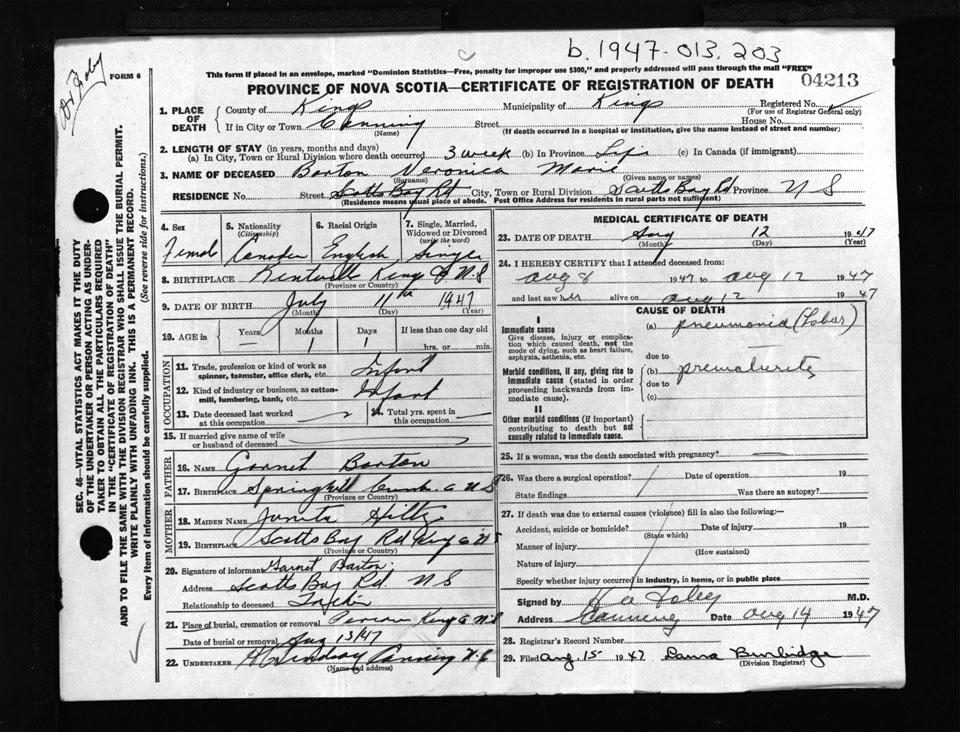 b. 1947-013,203
Dr Foley
FORM 6
This form if placed in an envelope, marked "Dominion Statistics—Free, penalty for improper use $300," and properly addressed will pass through the mail "FREE"
PROVINCE OF NOVA SCOTIA—CERTIFICATE OF REGISTRATION OF DEATH
04213
SEC. 46—VITAL STATISTICS ACT MAKES IT THE DUTY
OF THE UNDERTAKER OR PERSON ACTING AS UNDER-
TAKER TO OBTAIN ALL THE PARTICULARS REQUIRED
IN THE "CERTIFICATE OF REGISTRATION OF DEATH"
AND TO FILE THE SAME WITH THE DIVISION REGISTRAR WHO SHALL ISSUE THE BURIAL PERMIT.
WRITE PLAINLY WITH UNFADING INK. THIS IS A PERMANENT RECORD.
Every item of information should be carefully supplied. (See reverse side for instructions.)
1. PLACE OF DEATH
County of Kings Municipality of Kings Registered No.
(For use of Registrar General only)
If in City or Town Canning Street House No.
(Name) (If death occurred in a hospital or institution, give the name instead of street and number)
2. LENGTH OF STAY (in years, months and days)
(a) In City, Town or Rural Division where death occurred 3 week (b) In Province Life (c) In Canada (if immigrant)
3. NAME OF DECEASED Barton Veronica Marie
(Surname) (Given name or names)
RESIDENCE No. Street Scotts Bay Rd City, Town or Rural Division Scotts Bay Rd Province N S
(Residence means usual place of abode. Post Office Address for residents in rural parts not sufficient)
4. Sex 5. Nationality (Citizenship) 6. Racial Origin 7. Single, Married, Widowed or Divorced (write the word)
Female Canadian English Single
8. BIRTHPLACE Kentville Kings Co N.S
(Province or Country)
9. DATE OF BIRTH July 11th 1947
(Month) (Day) (Year)
10. AGE in Years Months Days If less than one day old
— 1 1 hrs. or min.
OCCUPATION
11. Trade, profession or kind of work as spinner, teamster, office clerk, etc. Infant
12. Kind of industry or business, as cotton-mill, lumbering, bank, etc. Infant
13. Date deceased last worked at this occupation 14. Total yrs. spent in this occupation
15. If married give name of wife or husband of deceased
FATHER
16. NAME Garnet Barton
17. BIRTHPLACE Springhill Cumb Co N S
(Province or Country)
MOTHER
18. MAIDEN NAME Junita Hiltz
19. BIRTHPLACE Scotts Bay Rd Kings Co NS
(Province or Country)
20. Signature of informant Garnet Barton
Address Scotts Bay Rd N S
Relationship to deceased Father
21. Place of burial, cremation or removal Kings Co N.S
Date of burial or removal Aug 13/47
22. UNDERTAKER Lindsay Canning N.S
(Name and address)
MEDICAL CERTIFICATE OF DEATH
23. DATE OF DEATH Aug 12 1947
(Month) (Day) (Year)
24. I HEREBY CERTIFY that I attended deceased from:
Aug 8 1947 to Aug 12 1947
and last saw her alive on Aug 12 1947
CAUSE OF DEATH
I
Immediate cause
Give disease, injury or complication which caused death, not the mode of dying, such as heart failure, asphyxia, asthenia, etc.
(a) pneumonia (Lobar)
due to
Morbid conditions, if any, giving rise to immediate cause (stated in order proceeding backwards from immediate cause).
(b) prematurity
due to
(c)
II
Other morbid conditions (if important) contributing to death but not causally related to immediate cause.
25. If a woman, was the death associated with pregnancy?
26. Was there a surgical operation? Date of operation 19
State findings Was there an autopsy?
27. If death was due to external causes (violence) fill in also the following:—
Accident, suicide or homicide? Date of injury 19
(State which)
Manner of injury
(How sustained)
Nature of injury
Specify whether injury occurred in industry, in home, or in public place
Signed by Foley M.D.
Address Canning Date Aug 14 1947
28. Registrar's Record Number
29. Filed Aug 15 1947 Laura Burbidge
(Division Registrar)